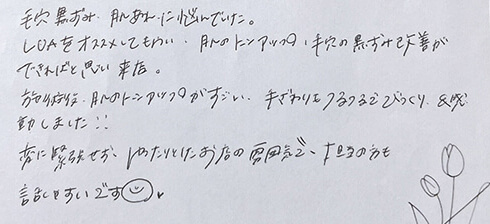 毛穴黒ずみ、肌あれに悩んでいた。
LUAをオススメしてもらい、肌のトーンアップ、毛穴の黒ずみ改善が
できればと思い来店。
施術後、肌のトーンアップがすごい、手ざわりもつるつるでびっくり&感
動しました!!
変に緊張せず、ゆったりとしたお店の雰囲気で、担当の方も
話しやすいです☺